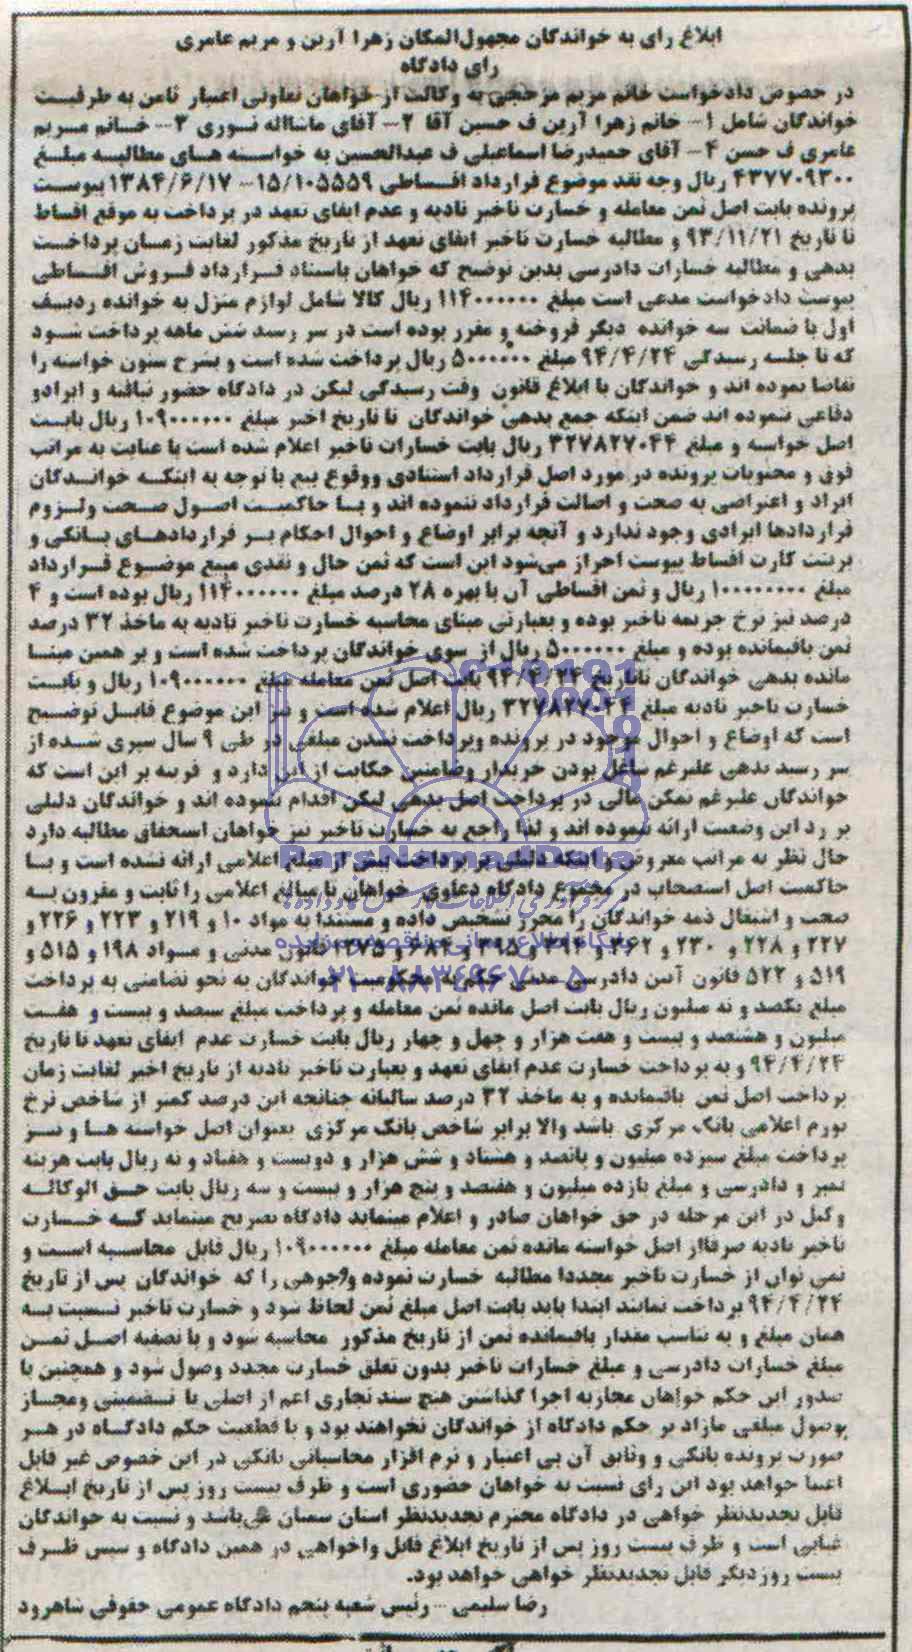 ابلاغ رای به خواندگان مجهول‌المکان زهرا آرین و مریم عامری
رای دادگاه
در خصوص دادخواست خانم مریم مزحجی به وکالت از خواهان تعاونی اعتبار ثامن به طرفیت
خواندگان شامل ۱- خانم زهرا آرین ف حسین آقا ۲- آقای ماشااله نوری ۳- خانم مریم
عامری ف حسن ۴- آقای حمیدرضا اسماعیلی ف عبدالحسین به خواسته های مطالبه مبلغ
۴۳۷۷۰۹۳۰۰ ریال وجه نقد موضوع قرارداد اقساطی ۱۵/۱۰۵۵۵۹- ۱۳۸۴/۶/۱۷ پیوست
پرونده بابت اصل ثمن معامله و خسارت تاخیر تادیه و عدم ایفای تعهد در پرداخت به موقع اقساط
تا تاریخ ۹۳/۱۱/۲۱ و مطالبه خسارت تاخیر ایفای تعهد از تاریخ مذکور لغایت زمان پرداخت
بدهی و مطالبه خسارات دادرسی بدین توضیح که خواهان باستناد قرارداد فروش اقساطی
پیوست دادخواست مدعی است مبلغ ۱۱۴۰۰۰۰۰۰ ریال کالا شامل لوازم منزل به خوانده ردیف
اول با ضمانت سه خوانده دیگر فروخته و مقرر بوده است در سر رسید شش ماهه پرداخت شود
که تا جلسه رسیدگی ۹۴/۴/۲۴ مبلغ ۵۰۰۰۰۰۰ ریال پرداخت شده است و بشرح ستون خواسته را
تقاضا نموده اند و خواندگان با ابلاغ قانونی وقت رسیدگی لیکن در دادگاه حضور نیافته و ایرادو
دفاعی ننموده اند ضمن اینکه جمع بدهی خواندگان تا تاریخ اخیر مبلغ ۱۰۹۰۰۰۰۰۰ ریال بابت
اصل خواسته و مبلغ ۳۲۷۸۲۷۰۴۴ ریال بابت خسارات تاخیر اعلام شده است با عنایت به مراتب
فوق و محتویات پرونده در مورد اصل قرارداد استنادی ووقوع بیع با توجه به اینکه خواندگان
ایراد و اعتراضی به صحت و اصالت قرارداد ننموده اند و با حاکمیت اصول صحت ولزوم
قراردادها ایرادی وجود ندارد و آنچه برابر اوضاع و احوال احکام بر قراردادهای بانکی و
پرینت کارت اقساط پیوست احراز می‌شود این است که ثمن حال و نقدی مبیع موضوع قرارداد
مبلغ ۱۰۰۰۰۰۰۰۰ ریال و ثمن اقساطی آن با بهره ۲۸ درصد مبلغ ۱۱۴۰۰۰۰۰۰ ریال بوده است و ۴
درصد نیز نرخ جریمه تاخیر بوده و بعبارتی مبنای محاسبه خسارت تاخیر تادیه به ماخذ ۳۲ درصد
ثمن باقیمانده بوده و مبلغ ۵۰۰۰۰۰۰ ریال از سوی خواندگان پرداخت شده است و بر همین مبنا
مانده بدهی خواندگان تاتاریخ ۹۴/۴/۲۴ بابت اصل ثمن معامله مبلغ ۱۰۹۰۰۰۰۰۰ ریال و بابت
خسارت تاخیر تادیه مبلغ ۳۲۷۸۲۷۰۴۴ ریال اعلام شده است و نیز این موضوع قابل توضیح
است که اوضاع و احوال موجود در پرونده وپرداخت نشدن مبلغی در طی ۹ سال سپری شده از
سر رسید بدهی علیرغم شاغل بودن خریدار وضامنین حکایت از این دارد و قرینه بر این است که
خواندگان علیرغم تمکن مالی در پرداخت اصل بدهی لیکن اقدام ننموده اند و خواندگان دلیلی
بر رد این وضعیت ارائه ننموده اند و لذا راجع به خسارت تاخیر نیز خواهان استحقاق مطالبه دارد
حال نظر به مراتب معروض و اینکه دلیلی بر پرداخت بیش از مبلغ اعلامی ارائه نشده است و با
حاکمیت اصل استصحاب در مجموع دادگاه دعاوی خواهان تا مبالغ اعلامی را ثابت و مقرون به
صحت و اشتغال ذمه خواندگان را محرز تشخیص داده و مستندا به مواد ۱۰ و ۲۱۹ و ۲۲۳ و ۲۲۶ و
۲۲۷ و ۲۲۸ و ۲۳۰ و ۳۶۲ و ۳۹۴ و ۳۹۵ و ۶۸۴ و ۱۲۷۵ قانون مدنی و مواد ۱۹۸ و ۵۱۵ و
۵۱۹ و ۵۲۲ قانون آیین دادرسی مدنی حکم به محکومیت خواندگان به نحو تضامنی به پرداخت
مبلغ یکصد و نه میلیون ریال بابت اصل مانده ثمن معامله و پرداخت مبلغ سیصد و بیست و هفت
میلیون و هشتصد و بیست و هفت هزار و چهل و چهار ریال بابت خسارت عدم ایفای تعهد تا تاریخ
۹۴/۴/۲۴ و به پرداخت خسارت عدم ایفای تعهد و بعبارت تاخیر تادیه از تاریخ اخیر لغایت زمان
پرداخت اصل ثمن باقیمانده و به ماخذ ۳۲ درصد سالیانه چنانچه این درصد کمتر از شاخص نرخ
تورم اعلامی بانک مرکزی باشد والا برابر شاخص بانک مرکزی بعنوان اصل خواسته ها و نیز
پرداخت مبلغ سیزده میلیون و پانصد و هشتاد و شش هزار و دویست و هفتاد و نه ریال بابت هزینه
تمبر و دادرسی و مبلغ یازده میلیون و هفتصد و پنج هزار و بیست و سه ریال بابت حق الوکاله
وکیل در این مرحله در حق خواهان صادر و اعلام مینماید دادگاه تصریح مینماید که خسارت
تاخیر تادیه صرفااز اصل خواسته مانده ثمن معامله مبلغ ۱۰۹۰۰۰۰۰۰ ریال قابل محاسبه است و
نمی توان از خسارت تاخیر مجددا مطالبه خسارت نموده ووجوهی را که خواندگان پس از تاریخ
۹۴/۴/۲۴ پرداخت نمایند ابتدا باید بابت اصل مبلغ ثمن لحاظ شود و خسارت تاخیر نسبت به
همان مبلغ و به تناسب مقدار باقیمانده ثمن از تاریخ مذکور محاسبه شود و با تصفیه اصل ثمن
مبلغ خسارات دادرسی و مبلغ خسارات تاخیر بدون تعلق خسارت مجدد وصول شود و همچنین با
صدور این حکم خواهان مجازبه اجرا گذاشتن هیچ سند تجاری اعم از اصلی یا تضمینی ومجاز
بوصول مبلغی مازاد بر حکم دادگاه از خواندگان نخواهند بود و با قطعیت حکم دادگاه در هر
صورت پرونده بانکی و وثایق آن بی اعتبار و نرم افزار محاسباتی بانکی در این خصوص غیر قابل
اعتنا خواهد بود این رای نسبت به خواهان حضوری است و ظرف بیست روز پس از تاریخ ابلاغ
قابل تجدیدنظر خواهی در دادگاه محترم تجدیدنظر استان سمنان می‌باشد و نسبت به خواندگان
غیابی است و ظرف بیست روز پس از تاریخ ابلاغ قابل واخواهی در همین دادگاه و سپس ظرف
بیست روزدیگر قابل تجدیدنظر خواهی خواهد بود.
رضا سلیمی - رئیس شعبه پنجم دادگاه عمومی حقوقی شاهرود
ParsNamadData
پایگاه اطلاع رسانی مناقصه و مزایده
۰۲۱-۸۸۳۴۹۶۷۰-۵